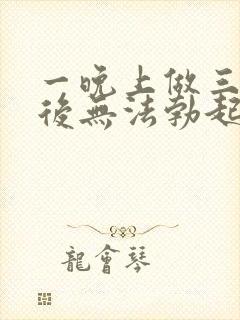 一晚上做三
後無法勃起
龍會琴